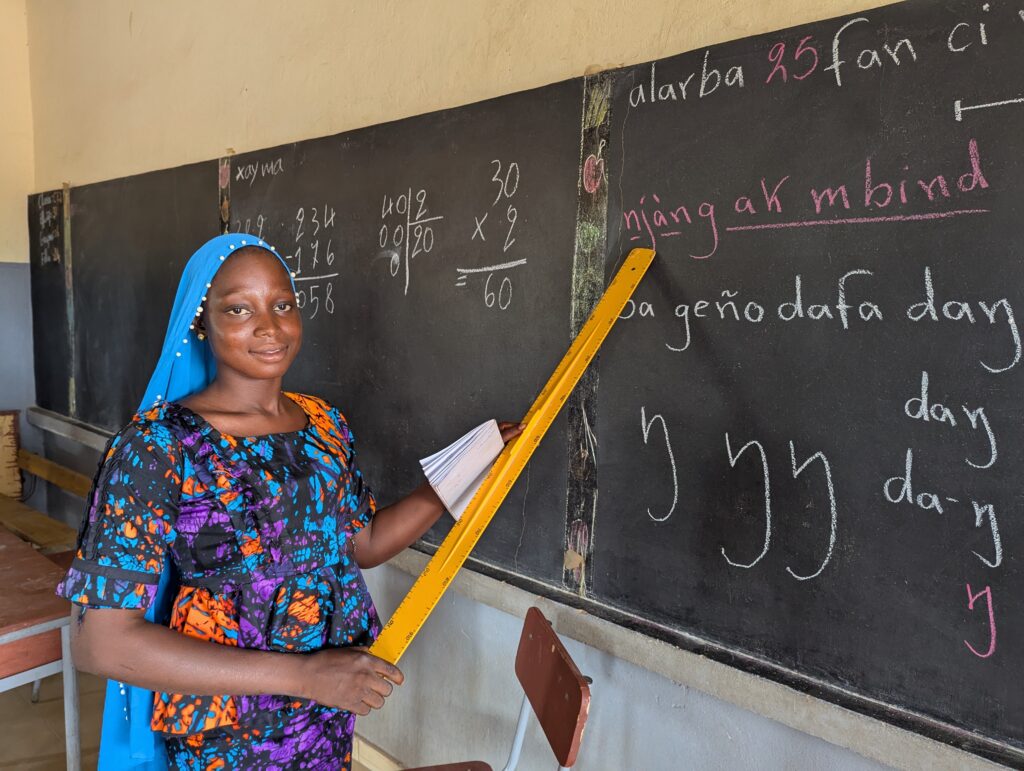 xayma
234
-176
058
40 2
00 20
0
30
x 2
= 60
alarba 25 fan ci
njàng ak mbind
geño dafa daŋ
ŋ ŋ ŋ
daŋ
da-ŋ
ŋ